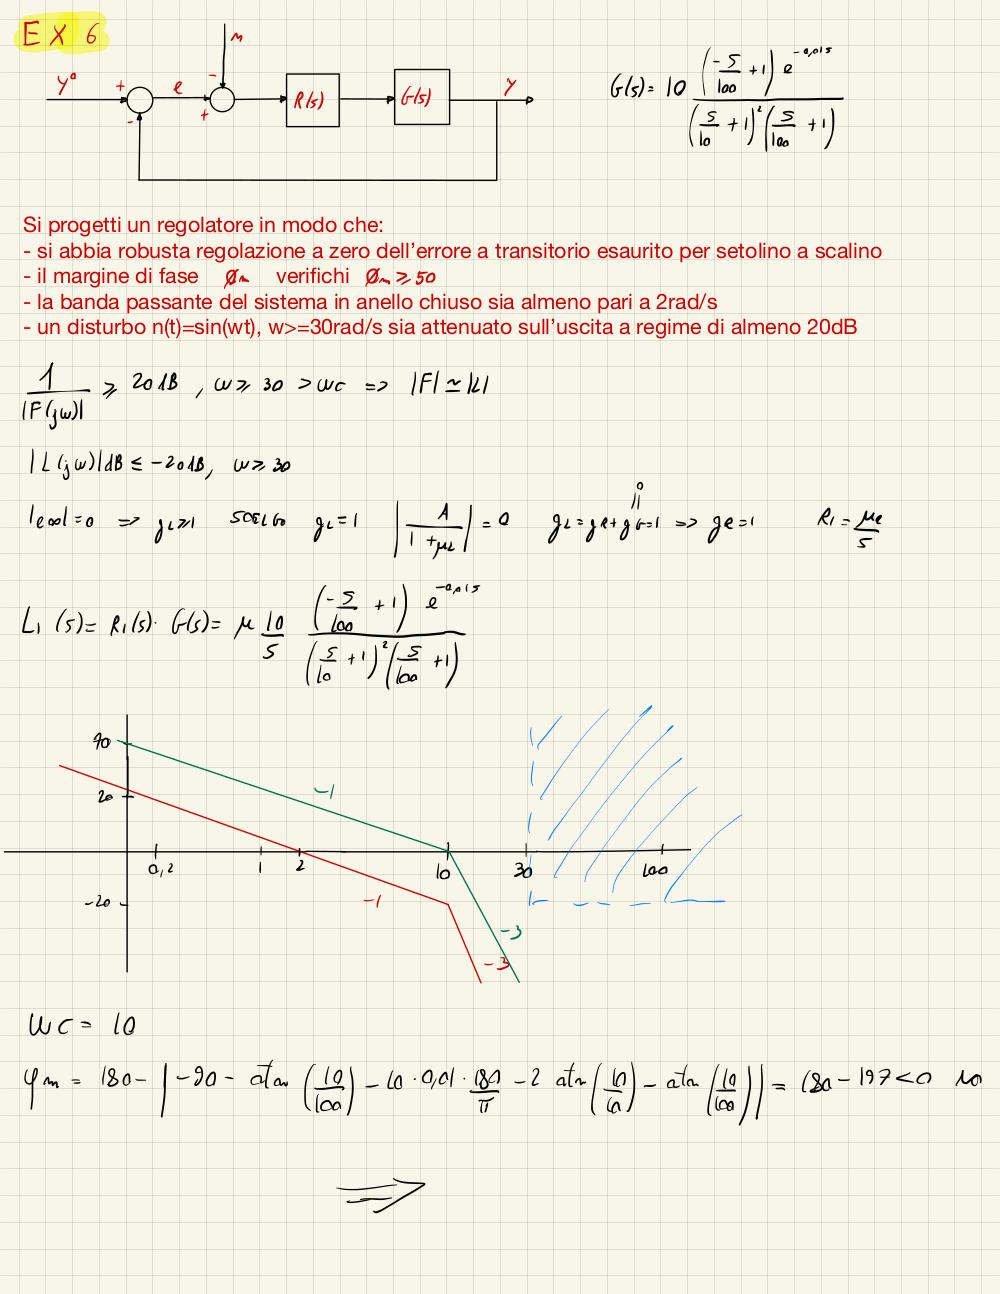 EX 6
n
y° + e - + - R(s) G(s) y
G(s) = 10 (-s/100 + 1) e^-0,01s / (s/10 + 1)² (s/100 + 1)
Si progetti un regolatore in modo che:
- si abbia robusta regolazione a zero dell'errore a transitorio esaurito per setolino a scalino
- il margine di fase φm verifichi φm ≥ 50
- la banda passante del sistema in anello chiuso sia almeno pari a 2rad/s
- un disturbo n(t)=sin(wt), w>=30rad/s sia attenuato sull'uscita a regime di almeno 20dB
1/|F(jω)| ≥ 20dB , ω ≥ 30 > ωc => |F| ≃ |L|
|L(jω)|dB ≤ -20dB, ω ≥ 30
|e∞| = 0 => gL ≥ 1 SCELGO gL = 1 |A/(1 + μL)| = 0 gL = gR + gG = 1 => gR = 1 R1 = μR/s
0
L1(s) = R1(s) · G(s) = μ 10/s (-s/100 + 1) e^-0,01s / (s/10 + 1)² (s/100 + 1)
40
-1
20
0,2 1 2 10 30 100
-20 -1
-3
-3
ωc = 10
φm = 180 - |-90 - atan(10/100) - 10 · 0,01 · 180/π - 2 atan(10/10) - atan(10/100)| = 180 - 197 < 0 no
=>